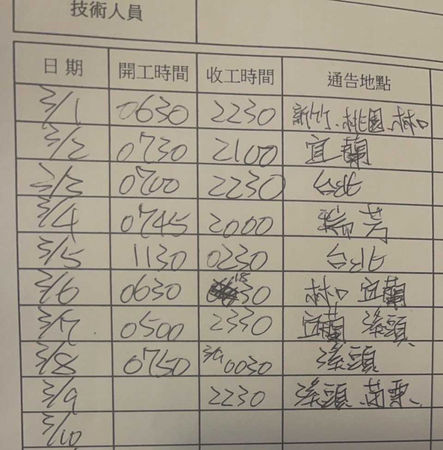 技術人員
日期 開工時間 收工時間 通告地點
3/1 0630 2230 新竹、桃園、林口
3/2 0730 2100 宜蘭
3/3 0700 2230 台北
3/4 0745 2000 瑞芳
3/5 1130 0230 台北
3/6 0630 1830 林口 宜蘭
3/7 0500 2330 宜蘭 溪頭
3/8 0750 3/9 0030 溪頭
3/9 2230 溪頭 苗栗
3/10